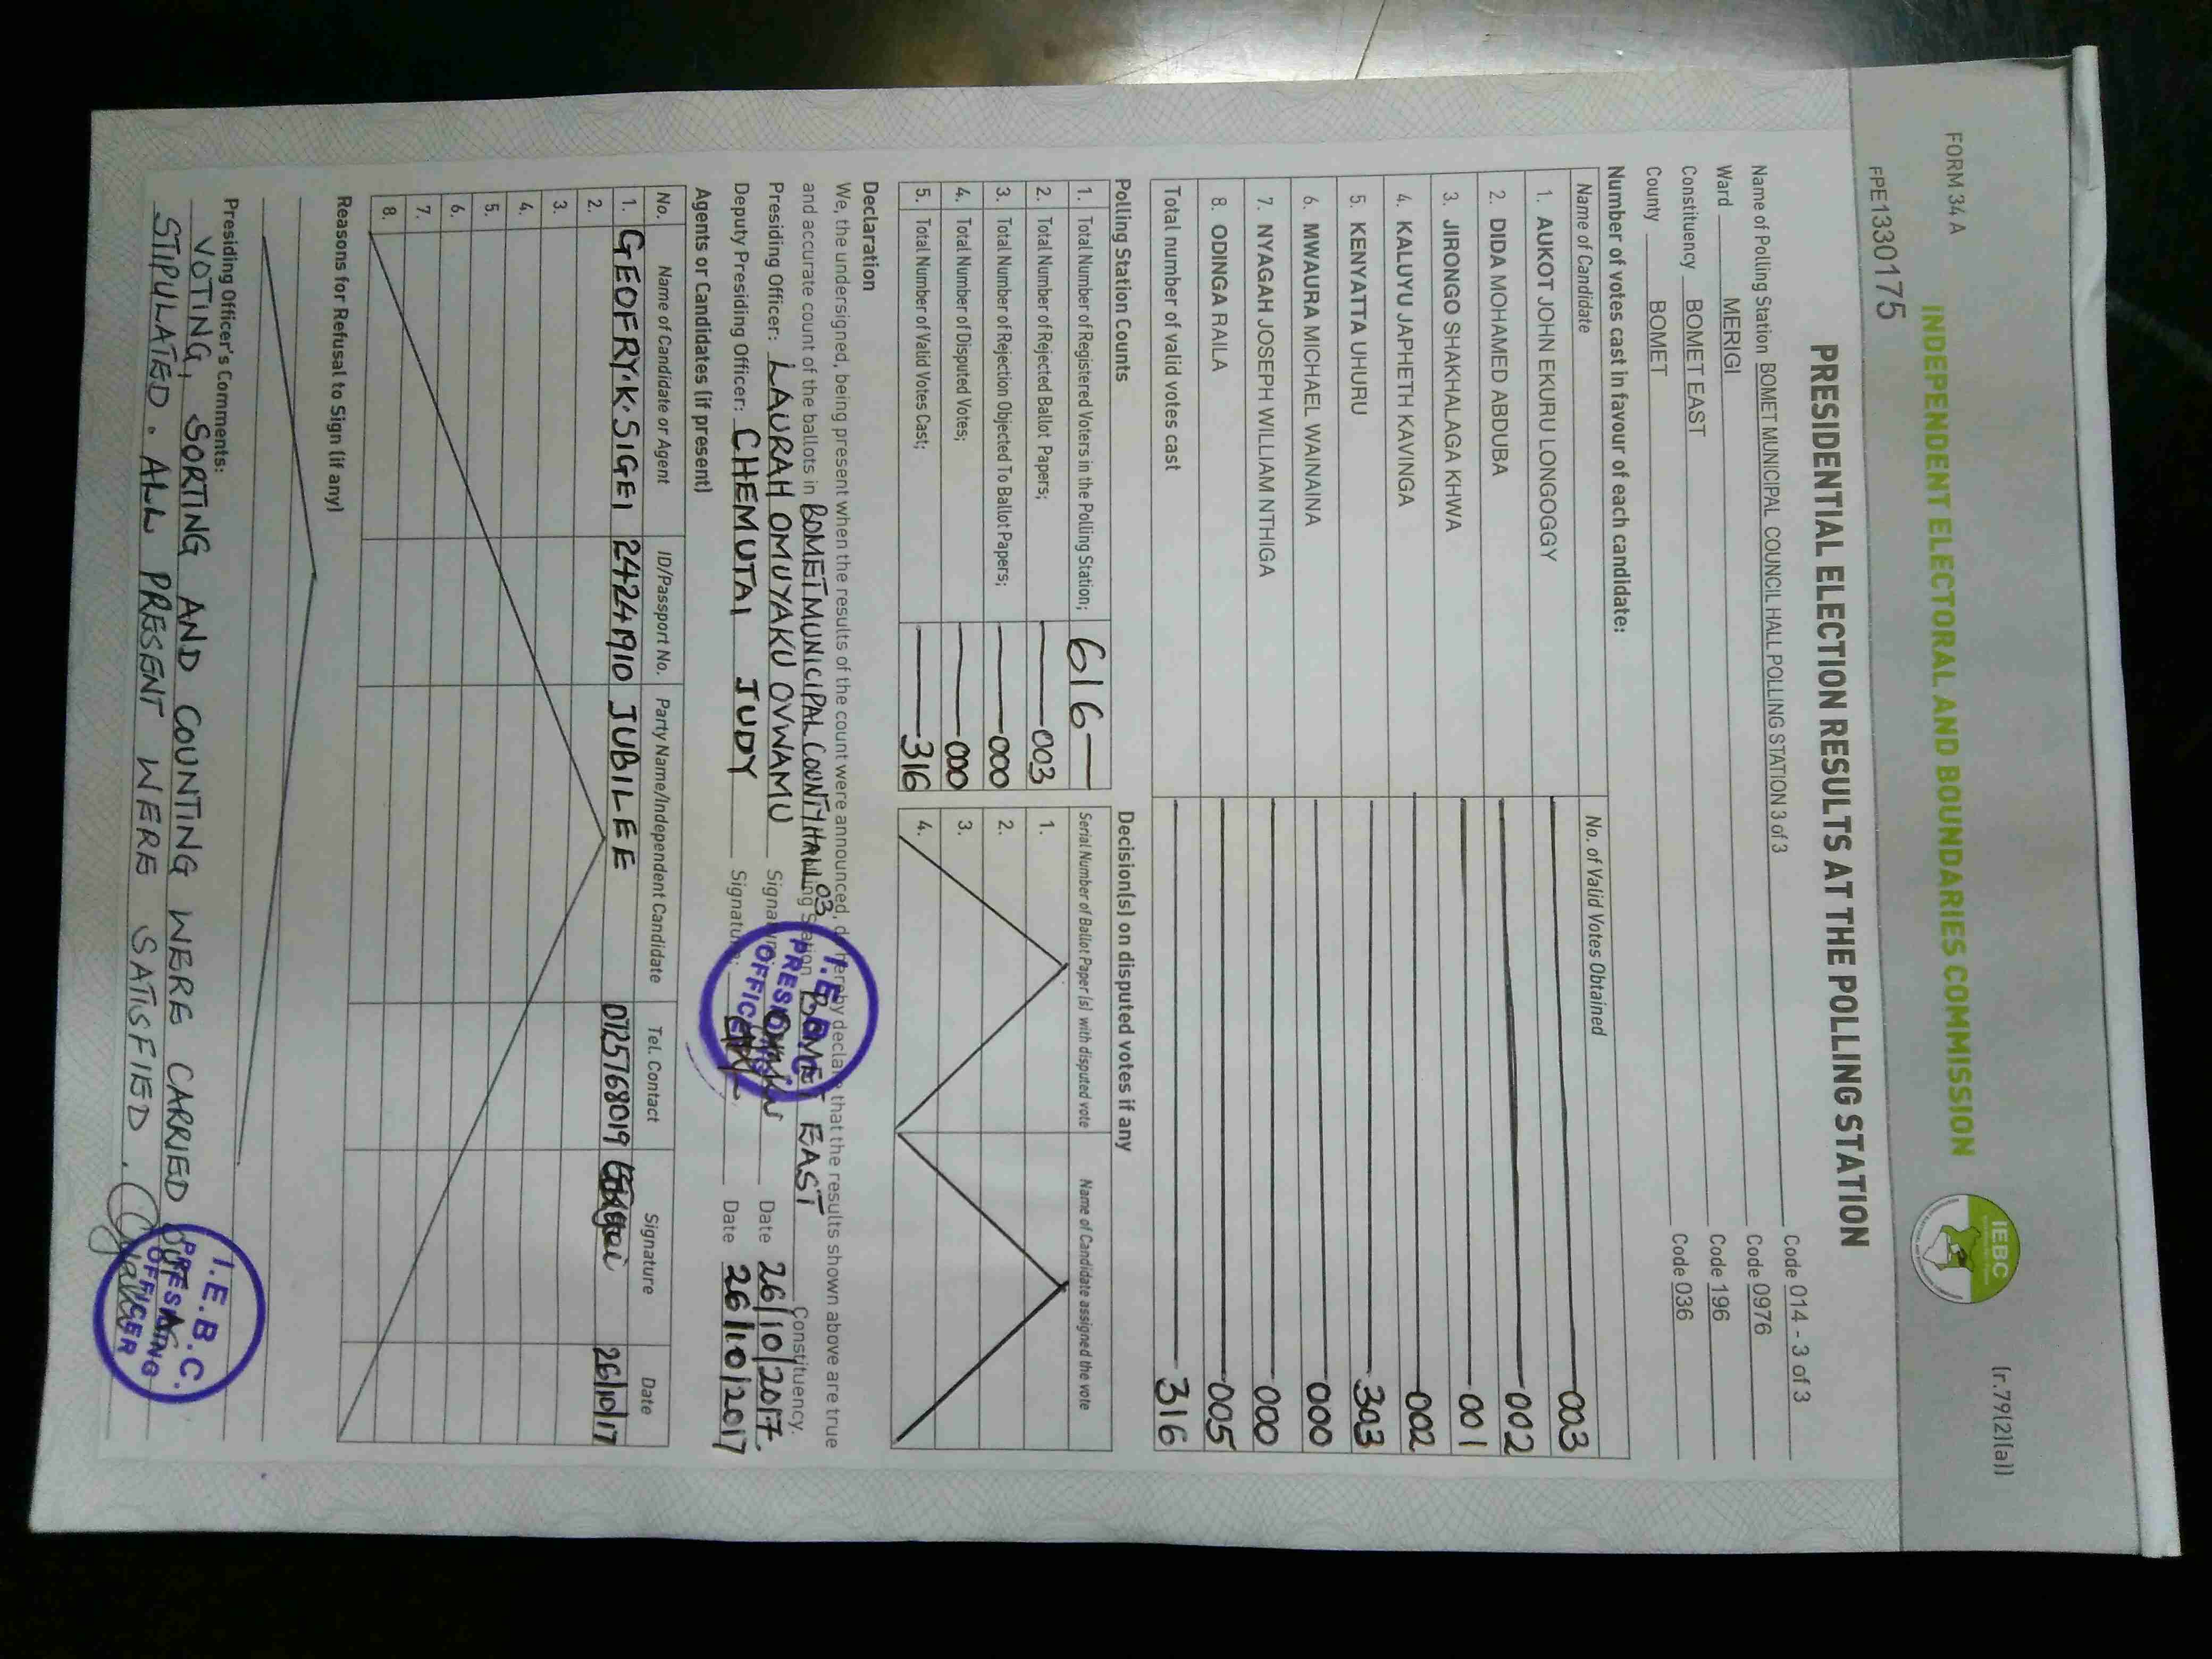 FORM 34 A
(r.79(2)(a))
INDEPENDENT ELECTORAL AND BOUNDARIES COMMISSION
IEBC
FPE1330175
PRESIDENTIAL ELECTION RESULTS AT THE POLLING STATION
Name of Polling Station BOMET MUNICIPAL COUNCIL HALL POLLING STATION 3 of 3 Code 014 - 3 of 3
Ward MERIGI Code 0976
Constituency BOMET EAST Code 196
County BOMET Code 036
Number of votes cast in favour of each candidate:
Name of Candidate No. of Valid Votes Obtained
1. AUKOT JOHN EKURU LONGOGGY 003
2. DIDA MOHAMED ABDUBA 002
3. JIRONGO SHAKHALAGA KHWA 001
4. KALUYU JAPHETH KAVINGA 002
5. KENYATTA UHURU 303
6. MWAURA MICHAEL WAINAINA 000
7. NYAGAH JOSEPH WILLIAM NTHIGA 000
8. ODINGA RAILA 005
Total number of valid votes cast 316
Polling Station Counts Decision(s) on disputed votes if any
Serial Number of Ballot Paper (s) with disputed vote Name of Candidate assigned the vote
1. Total Number of Registered Voters in the Polling Station; 616
2. Total Number of Rejected Ballot Papers; 003 1.
3. Total Number of Rejection Objected To Ballot Papers; 000 2.
4. Total Number of Disputed Votes; 000 3.
5. Total Number of Valid Votes Cast; 316 4.
Declaration
We, the undersigned, being present when the results of the count were announced, do hereby declare that the results shown above are true
and accurate count of the ballots in BOMET MUNICIPAL COUNTY HALL 03 Polling Station BOMET EAST Constituency.
Presiding Officer: LAURAH OMUYAKU OVWAMU Signature: Date 26/10/2017
Deputy Presiding Officer: CHEMUTAI JUDY Signature: Date 26/10/2017
I.E.B.C.
PRESIDING
OFFICER
Agents or Candidates (if present)
No. Name of Candidate or Agent ID/Passport No. Party Name/Independent Candidate Tel. Contact Signature Date
1. GEOFRY.K.SIGEI 24241910 JUBILEE 0725768019 26/10/17
2.
3.
4.
5.
6.
7.
8.
Reasons for Refusal to Sign (if any)
Presiding Officer's Comments:
VOTING, SORTING AND COUNTING WERE CARRIED OUT AS
STIPULATED. ALL PRESENT WERE SATISFIED.
I.E.B.C.
PRESIDING
OFFICER